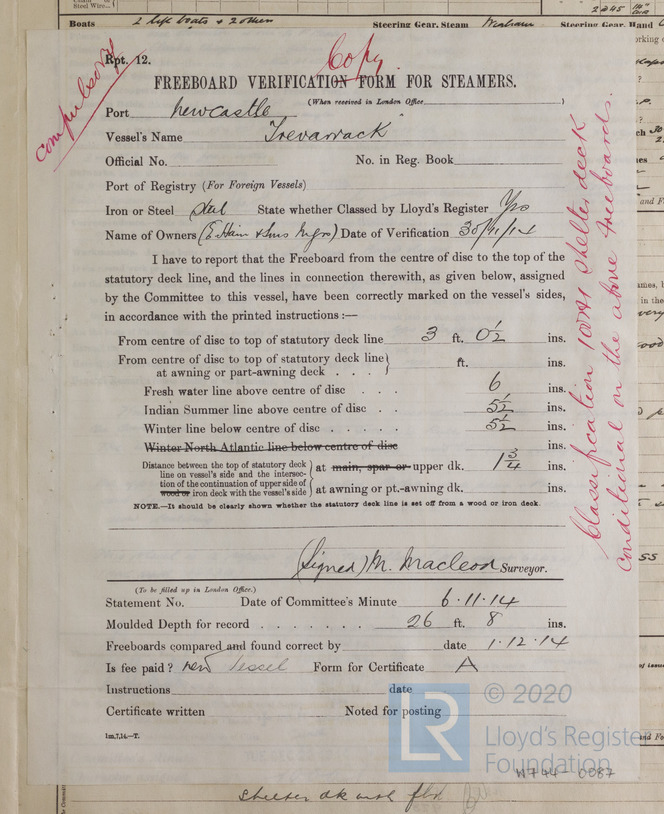 Boats 2 life boats & 2 others Steering Gear. Steam Steering Gear. Hand
Copy
compulsory
Rpt. 12.
FREEBOARD VERIFICATION FORM FOR STEAMERS.
(When received in London Office )
Port Newcastle
Vessel's Name Trevarrack
Official No. No. in Reg. Book
Port of Registry (For Foreign Vessels)
Iron or Steel Steel State whether Classed by Lloyd's Register Yes
Name of Owners (E Hain & Sons Mgrs) Date of Verification 30/11/14
I have to report that the Freeboard from the centre of disc to the top of the
statutory deck line, and the lines in connection therewith, as given below, assigned
by the Committee to this vessel, have been correctly marked on the vessel's sides,
in accordance with the printed instructions :—
From centre of disc to top of statutory deck line 3 ft. 0½ ins.
From centre of disc to top of statutory deck line
at awning or part-awning deck . . . ft. ins.
Fresh water line above centre of disc . . . 6 ins.
Indian Summer line above centre of disc . . 5½ ins.
Winter line below centre of disc . . . . . 5½ ins.
Winter North Atlantic line below centre of disc ins.
Distance between the top of statutory deck
line on vessel's side and the intersec- at main, spar or upper dk. 1¾ ins.
tion of the continuation of upper side of
wood or iron deck with the vessel's side at awning or pt.-awning dk. ins.
NOTE.—It should be clearly shown whether the statutory deck line is set off from a wood or iron deck.
(Signed) M. Macleod Surveyor.
(To be filled up in London Office.)
Statement No. Date of Committee's Minute 6.11.14
Moulded Depth for record . . . . . . . 26 ft. 8 ins.
Freeboards compared and found correct by date 1.12.14
Is fee paid? new vessel Form for Certificate A
Instructions date
Certificate written Noted for posting
1m,7,14.—T.
Classification 100A1 shelter deck
conditional on the above freeboards.
LR © 2020
Lloyd's Register
Foundation
W744-0087
shelter dk with fbd